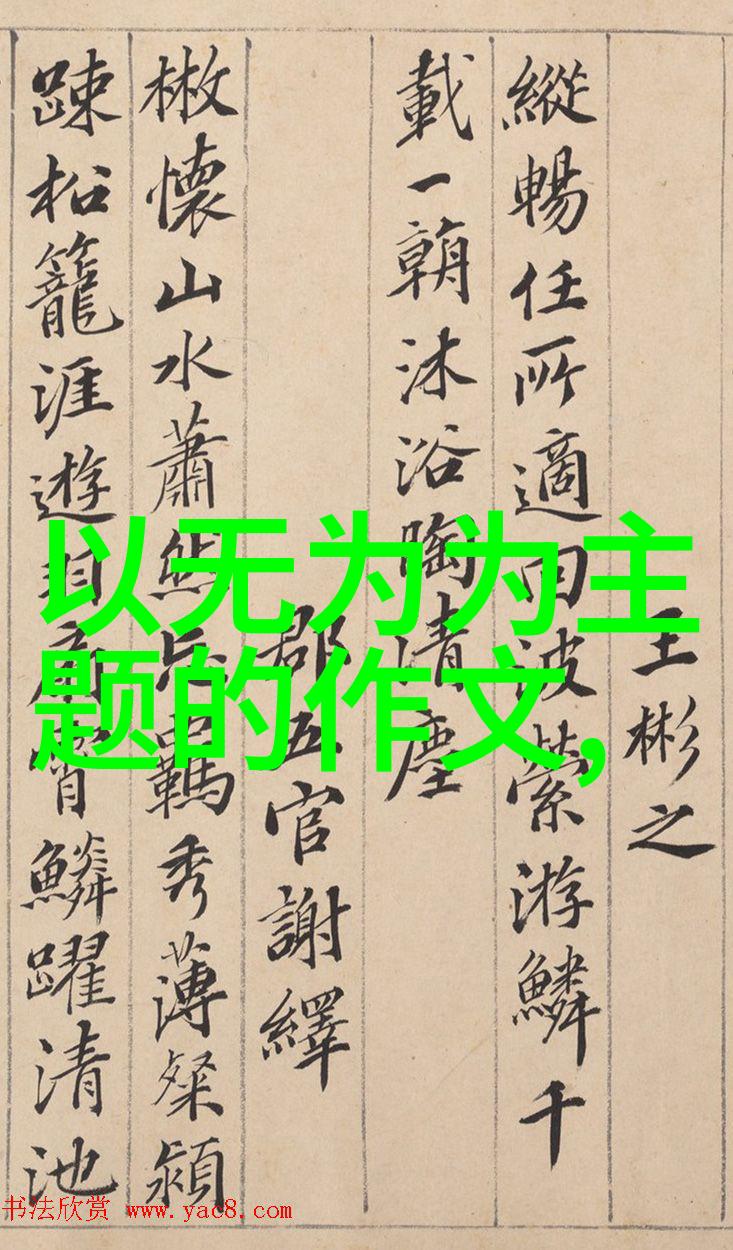 王彬之
縱暢任所適回波縈游鱗千
載一朝沐浴陶清塵
郡五官謝繹
散懷山水蕭然忘羈秀薄粲穎
踈松籠涯遊羽扇霄鱗躍清池
以无为为主
题的作文,
书法欣赏 www.yac8.com